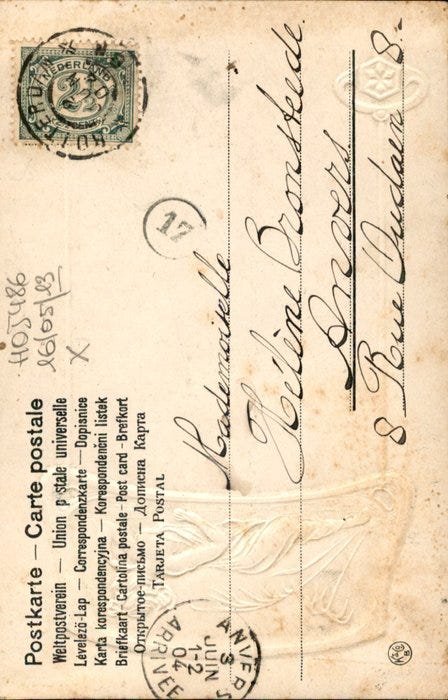 Postkarte – Carte postale
Weltpostverein – Union postale universelle
Levelező-Lap – Correspondenzkarte – Dopisnice
Karta korespondencyjna – Korespondenční listek
Briefkaart – Cartolina postale – Post card – Brefkort
Открытое-письмо – Дописна Карта
TARJETA POSTAL
NEDERLAND
2½
CENT
17
HOJ486
16/05/13
X
Mademoiselle
Hélène Bronstede.
Anvers
8 Rue Oudaen 8-
ANVERS
3
JUIN
1-2
04
ARRIVÉE